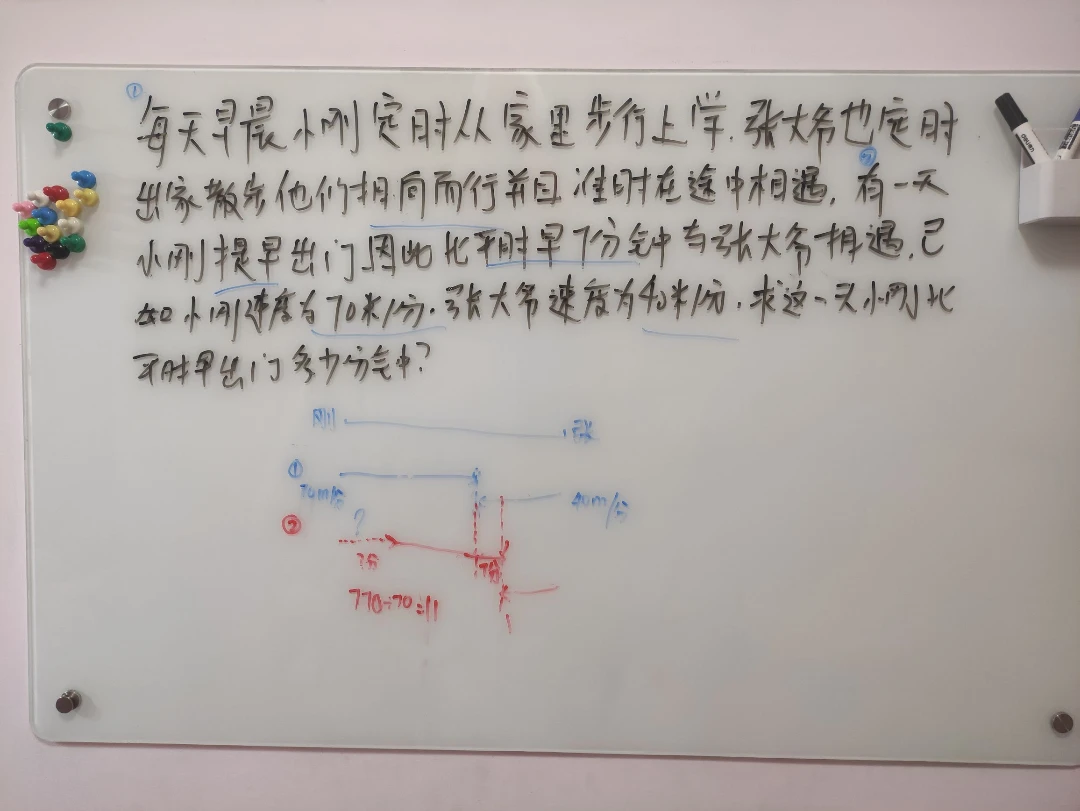 ①
每天早晨小刚定时从家里步行上学.张大爷也定时
②
出家散步他们相向而行并且准时在途中相遇,有一天
小刚提早出门因此比平时早7分钟与张大爷相遇,已
知小刚速度为70米/分.张大爷速度为40米/分.求这一天小刚比
平时早出门多少分钟?
刚 张
①
70m/分 40m/分
② ?
7分 7分
770÷70=11